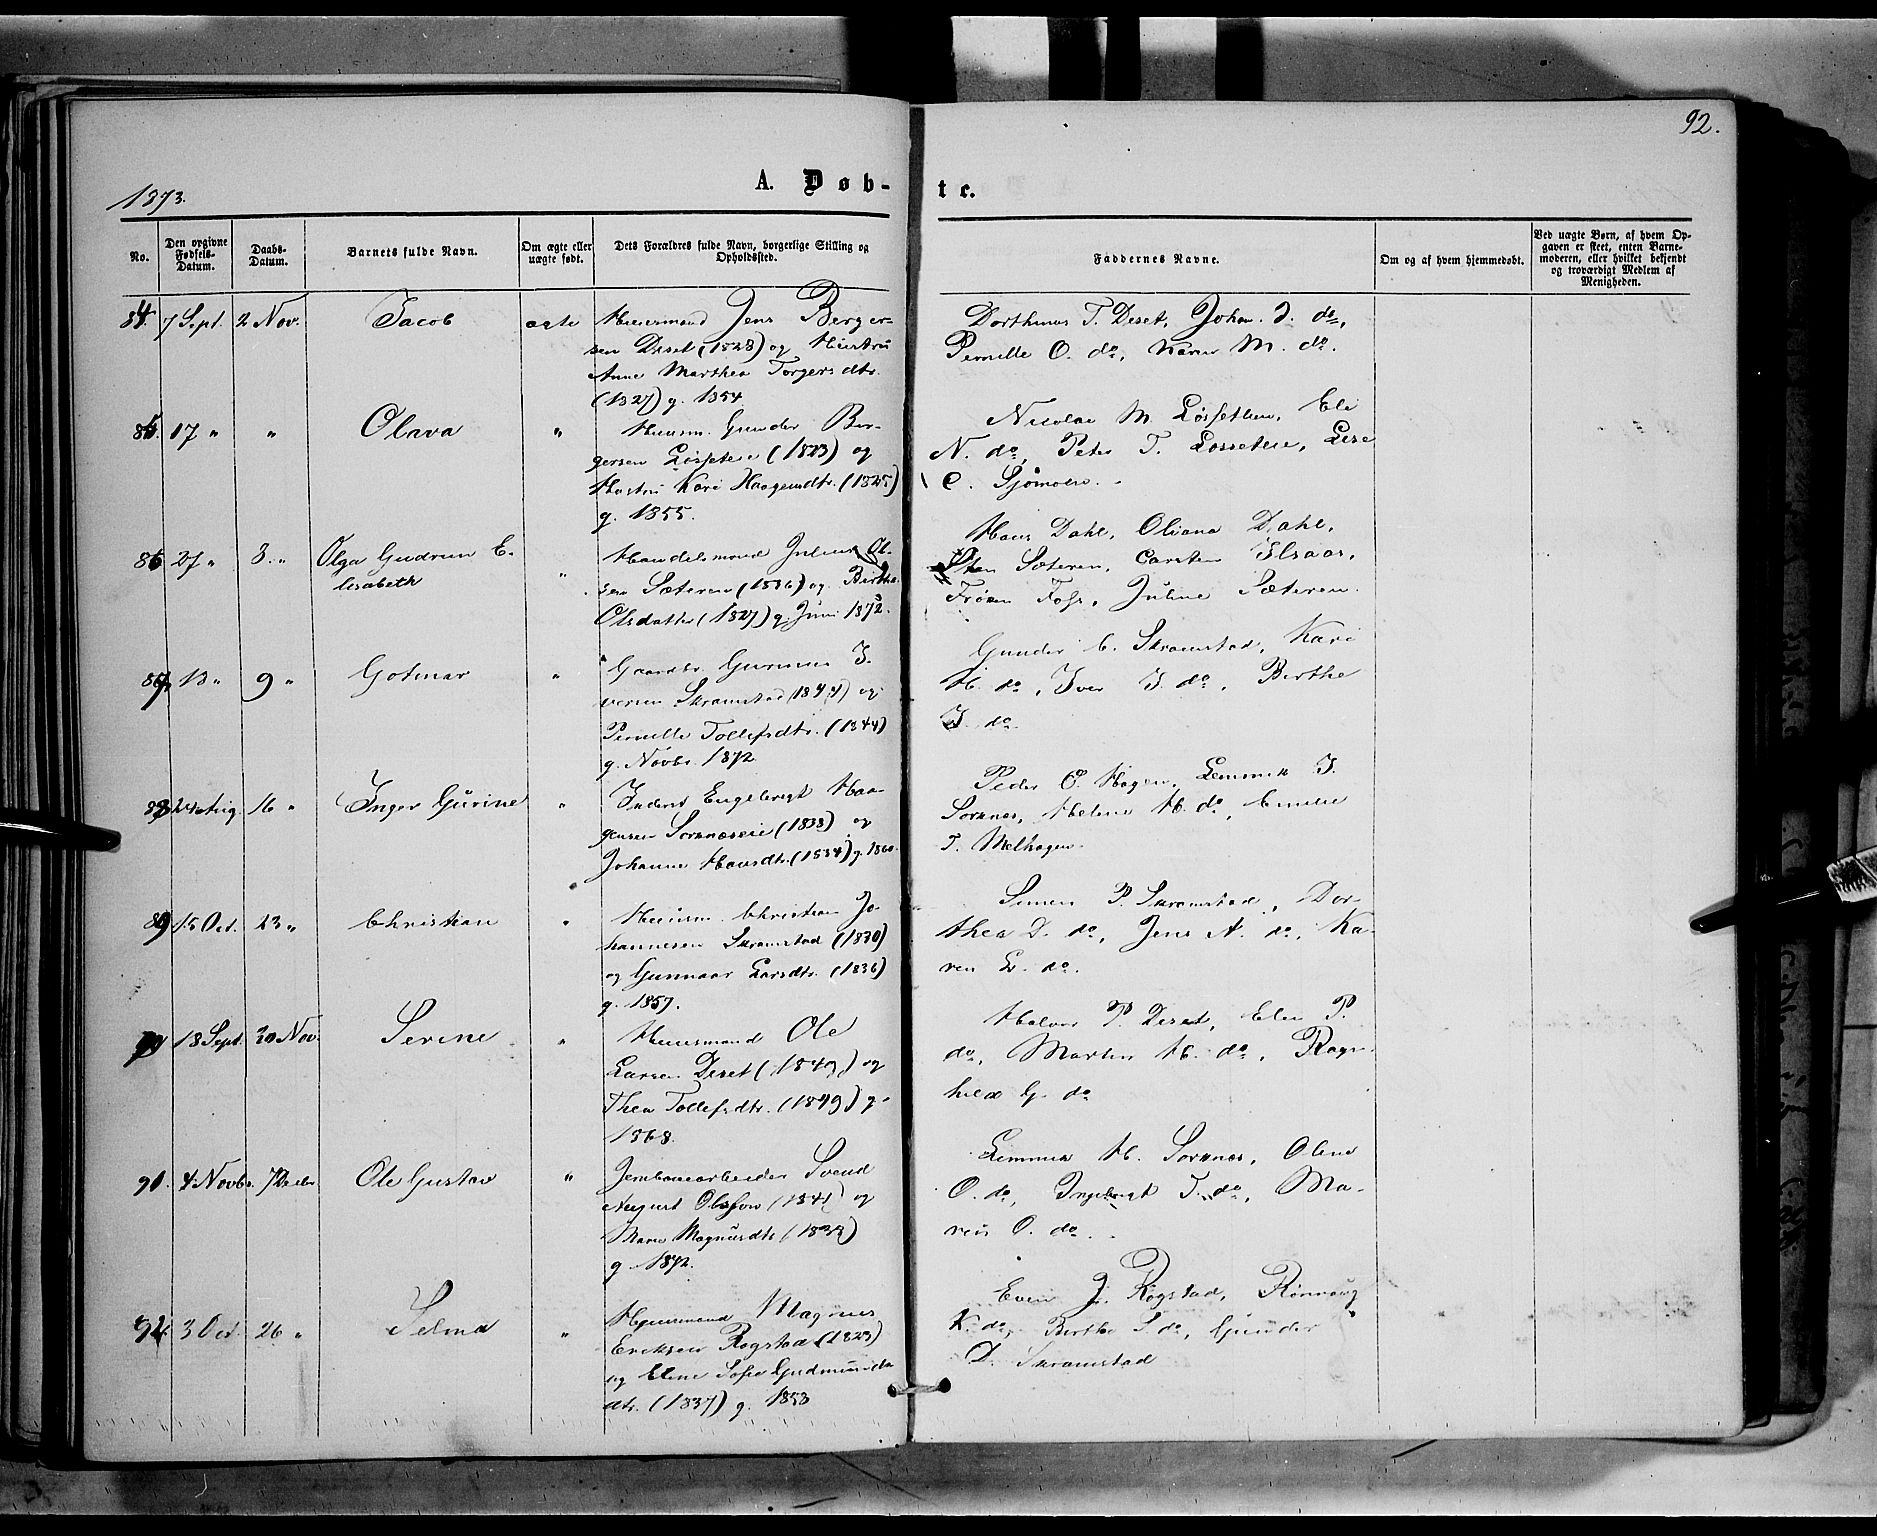 92.
1873.
A. Døb-
te.
No.
Den opgivne Fødsels-Datum.
Daabs-Datum.
Barnets fulde Navn.
Om ægte eller uægte født.
Dets Forældres fulde Navn, borgerlige Stilling og Opholdssted.
Faddernes Navne.
Om og af hvem hjemmedøbt.
Ved uægte Børn, af hvem Op-
gaven er skeet, enten Barne-
moderen, eller hvilket bekjendt
og troværdigt Medlem af
Menigheden.
84. 7 Sept. 2 Nov. Jacob ægte Huusmand Jens Berger-
sen Deset (1828) og Hustru
Anne Marthea Torgersdtr.
(1827) g. 1854.
Dorthinus T. Deset, Johan J. do,
Pernille O. do, Karen M. do.
85. 17 " " Olava " Huusm. Gunder Ber-
gersen Løsseteie (1823) og
Hustru Kari Haagensdtr. (1825)
g. 1855.
Nicolai M. Løssetlien, Eli
N. do, Peter T. Løsseteie, Lise
C. Sjømoen.
86 27 " 8. " Olga Gudrun E-
lisabeth
" Handelsmand Julius Ol-
sen Sæteren (1836) og Birthe
Olsdatter (1827) g. Juni 1872.
Hans Dahl, Oliana Dahl,
Sæteren, Carsten
Foss, Juline Sæteren.
87 13 " 9 " Gotmar " Gaardbr. Gunnar I-
versen Skramstad (1844) og
Pernille Tollefsdtr. (1844)
g. Novbr. 1872
Gunder C. Skramstad, Kari
H. do, Iver I. do, Birthe
I. do.
88 24 Aug. 16 " Inger Gurine " Inderst Engebregt Haa-
gensen Sorknæseie (1838) og
Johanne Hansdtr. (1834) g. 1860.
Peder O. Hagen, Lemmik I.
Sorknæs, Helene H. do, Emilie
T. Melhagen.
89 15 Oct. 23 " Christian " Huusm. Christian Jo-
hannesen Skramstad (1830)
og Gunnaar Larsdtr. (1836)
g. 1857.
Simen P. Skramstad, Dor-
thea D. do, Jens A. do, Ka-
ren L. do.
90 18 Sept. 30 Nov. Serine " Huusmand Ole
Larsen Deset (1849) og
Thea Tollefsdtr. (1849) g.
1868.
Halvor P. Deset, Elen P.
do, Martin H. do, Ragn-
hild G. do
91. 4 Novbr. 7 Decbr. Ole Gustav " Jernbanearbeider Svend
August Olsson (1841) og
Marie Magnusdtr.
g. 1872.
Lemmik H. Sorknæs, Oline
O. do, Ingebregt T. do, Ma-
ren O. do.
92. 3 Oct. 26 " Selma " Huusmand Magnus
Eriksen Rogstad (1823)
og Elene Sofie Gudmunds-
dtr. (1837) g. 1858
Even J. Rogstad, Rønnaug
K. do, Birthe S. do, Gunder
D. Skramstad